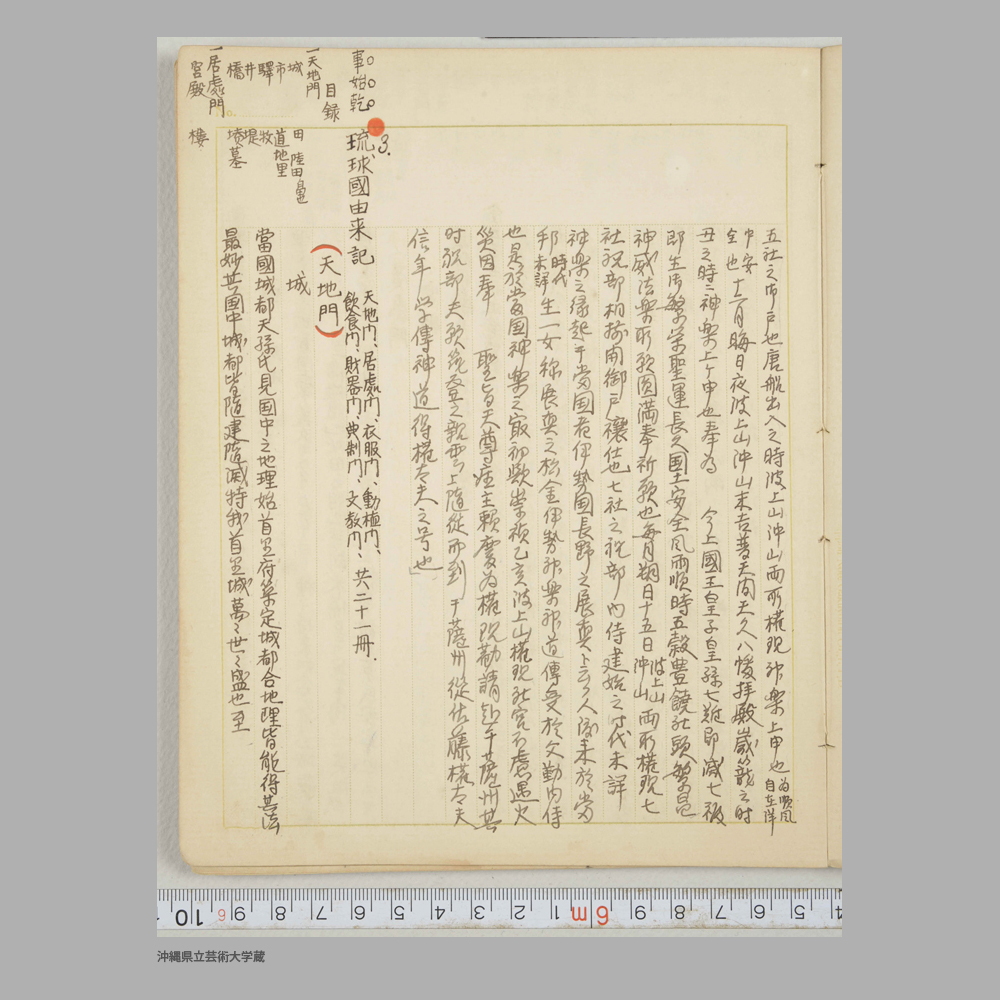 五社之御戸也唐船出入之時波上山沖山両所権現神楽上申也 為順風自在洋
中安全也 十二月晦日夜波上山沖山末吉普天間天久八幡拝殿歳籠之時
丑之時ニ神楽上ケ申也奉為 今上國王皇子皇孫七難即滅七福
即生御繁栄聖運長久国土安全風雨順時五穀豊饒社頭繁昌
神威法楽所願圓満奉祈願也毎月朔日十五日 波上山沖山 両所権現七
社祝部相揃開御戸禳仕也七社之祝部内侍建始之時代未詳
神楽之縁起于當国者伊勢国長野之展奥ト云人渡来於當
邦 時代未詳 生一女称展奥之松金伊勢神楽神道傳受於父勤内侍
也是於當国神楽之最初歟崇禎乙亥波上山権現社宮不慮遇火
災因奉 聖旨天尊座主頼慶為権現勧請赴于薩州其
時祝部夫願重登之親雲上随従而到于薩州従佐藤権太夫
信年学傳神道得権太夫之号也」
3.
琉球國由来記 天地門、居處門、衣服門、動植門、
飲食門、財器門、典制門、文教門、共二十一冊.
(天地門)
城
當國城都天孫氏見国中之地理始首里府築定城都合地理皆能得其法
最妙其国中城都皆随建随滅特我首里城萬々世々盛也至
事始乾
目録
一天地門
城 田 陸田 畠也
市 道 地里
驛 牧
井 堤
橋 墳墓
一居處門
宮殿 樓
5 6 7 8 9 6m 1 2 3 4 5 6 7 8 9 10
沖縄県立芸術大学蔵